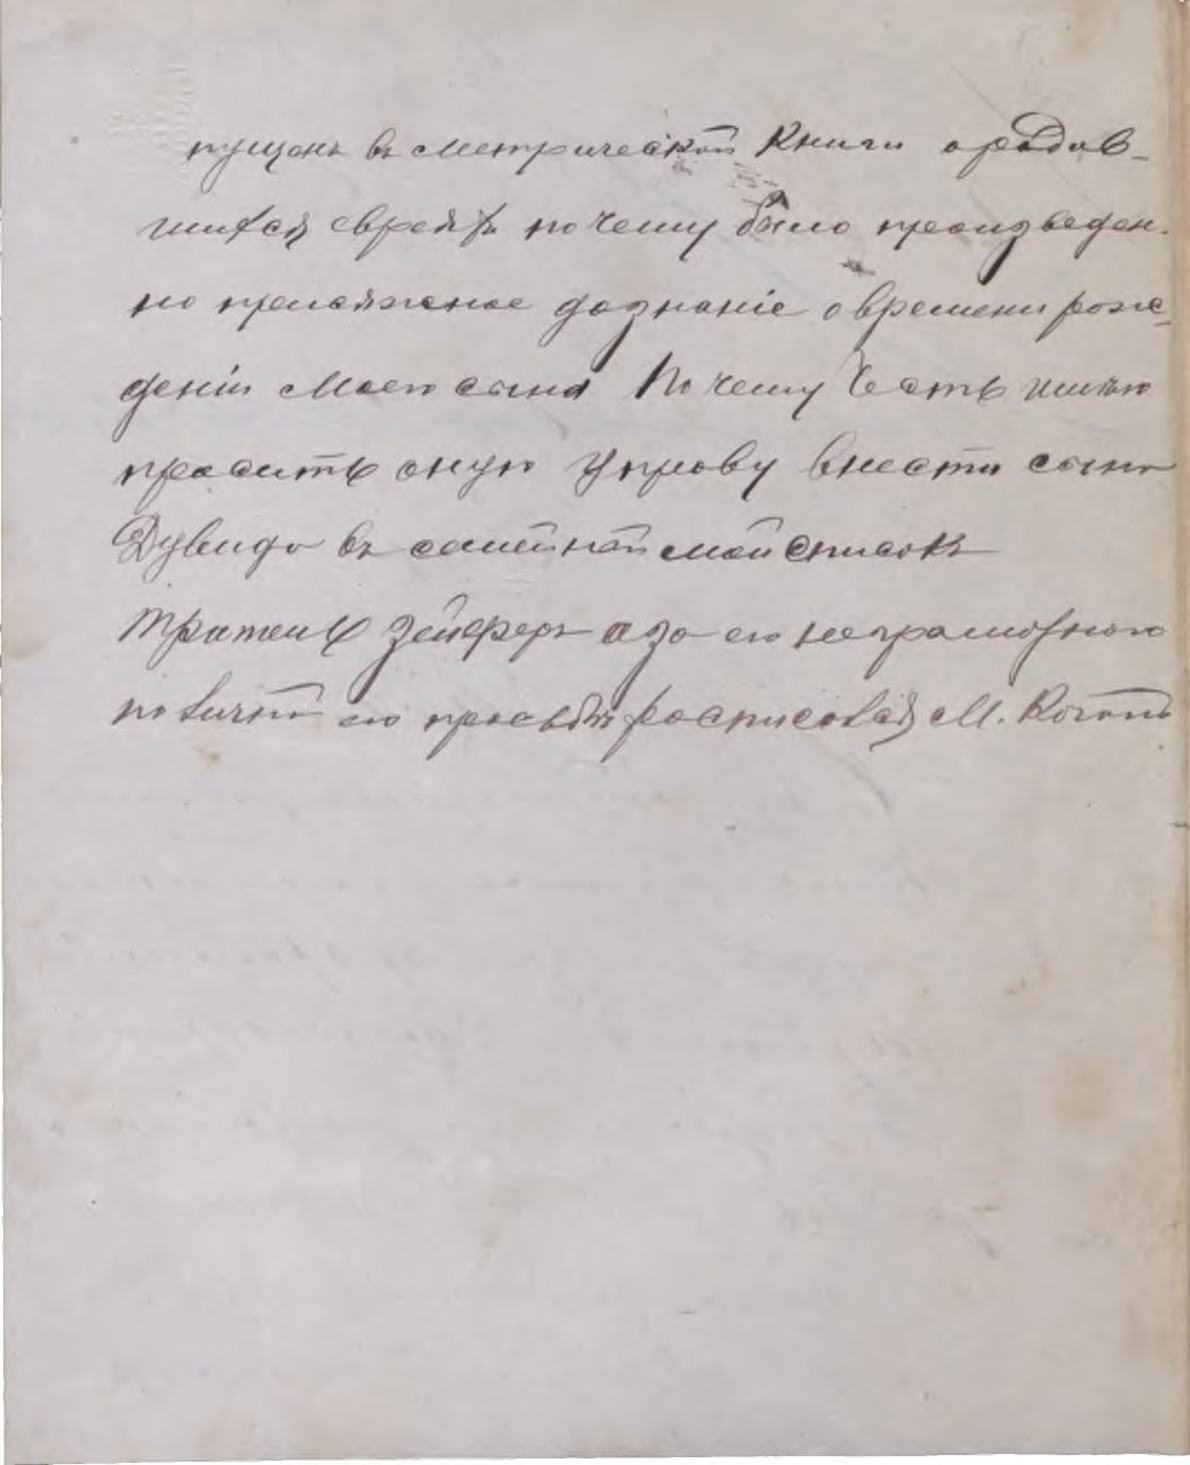 пущенъ въ метрической книги ородив-
шихся евреяхъ по чему было произведен-
но присяжное дознаніе о времени рож-
деніи моего сына По чему Честь имѣю
просить оную Управу внести сына
Дувида въ семейной мой списокъ
Зейферъ а за его неграмотного
по личной его просьбѣ росписовался М. Коганъ